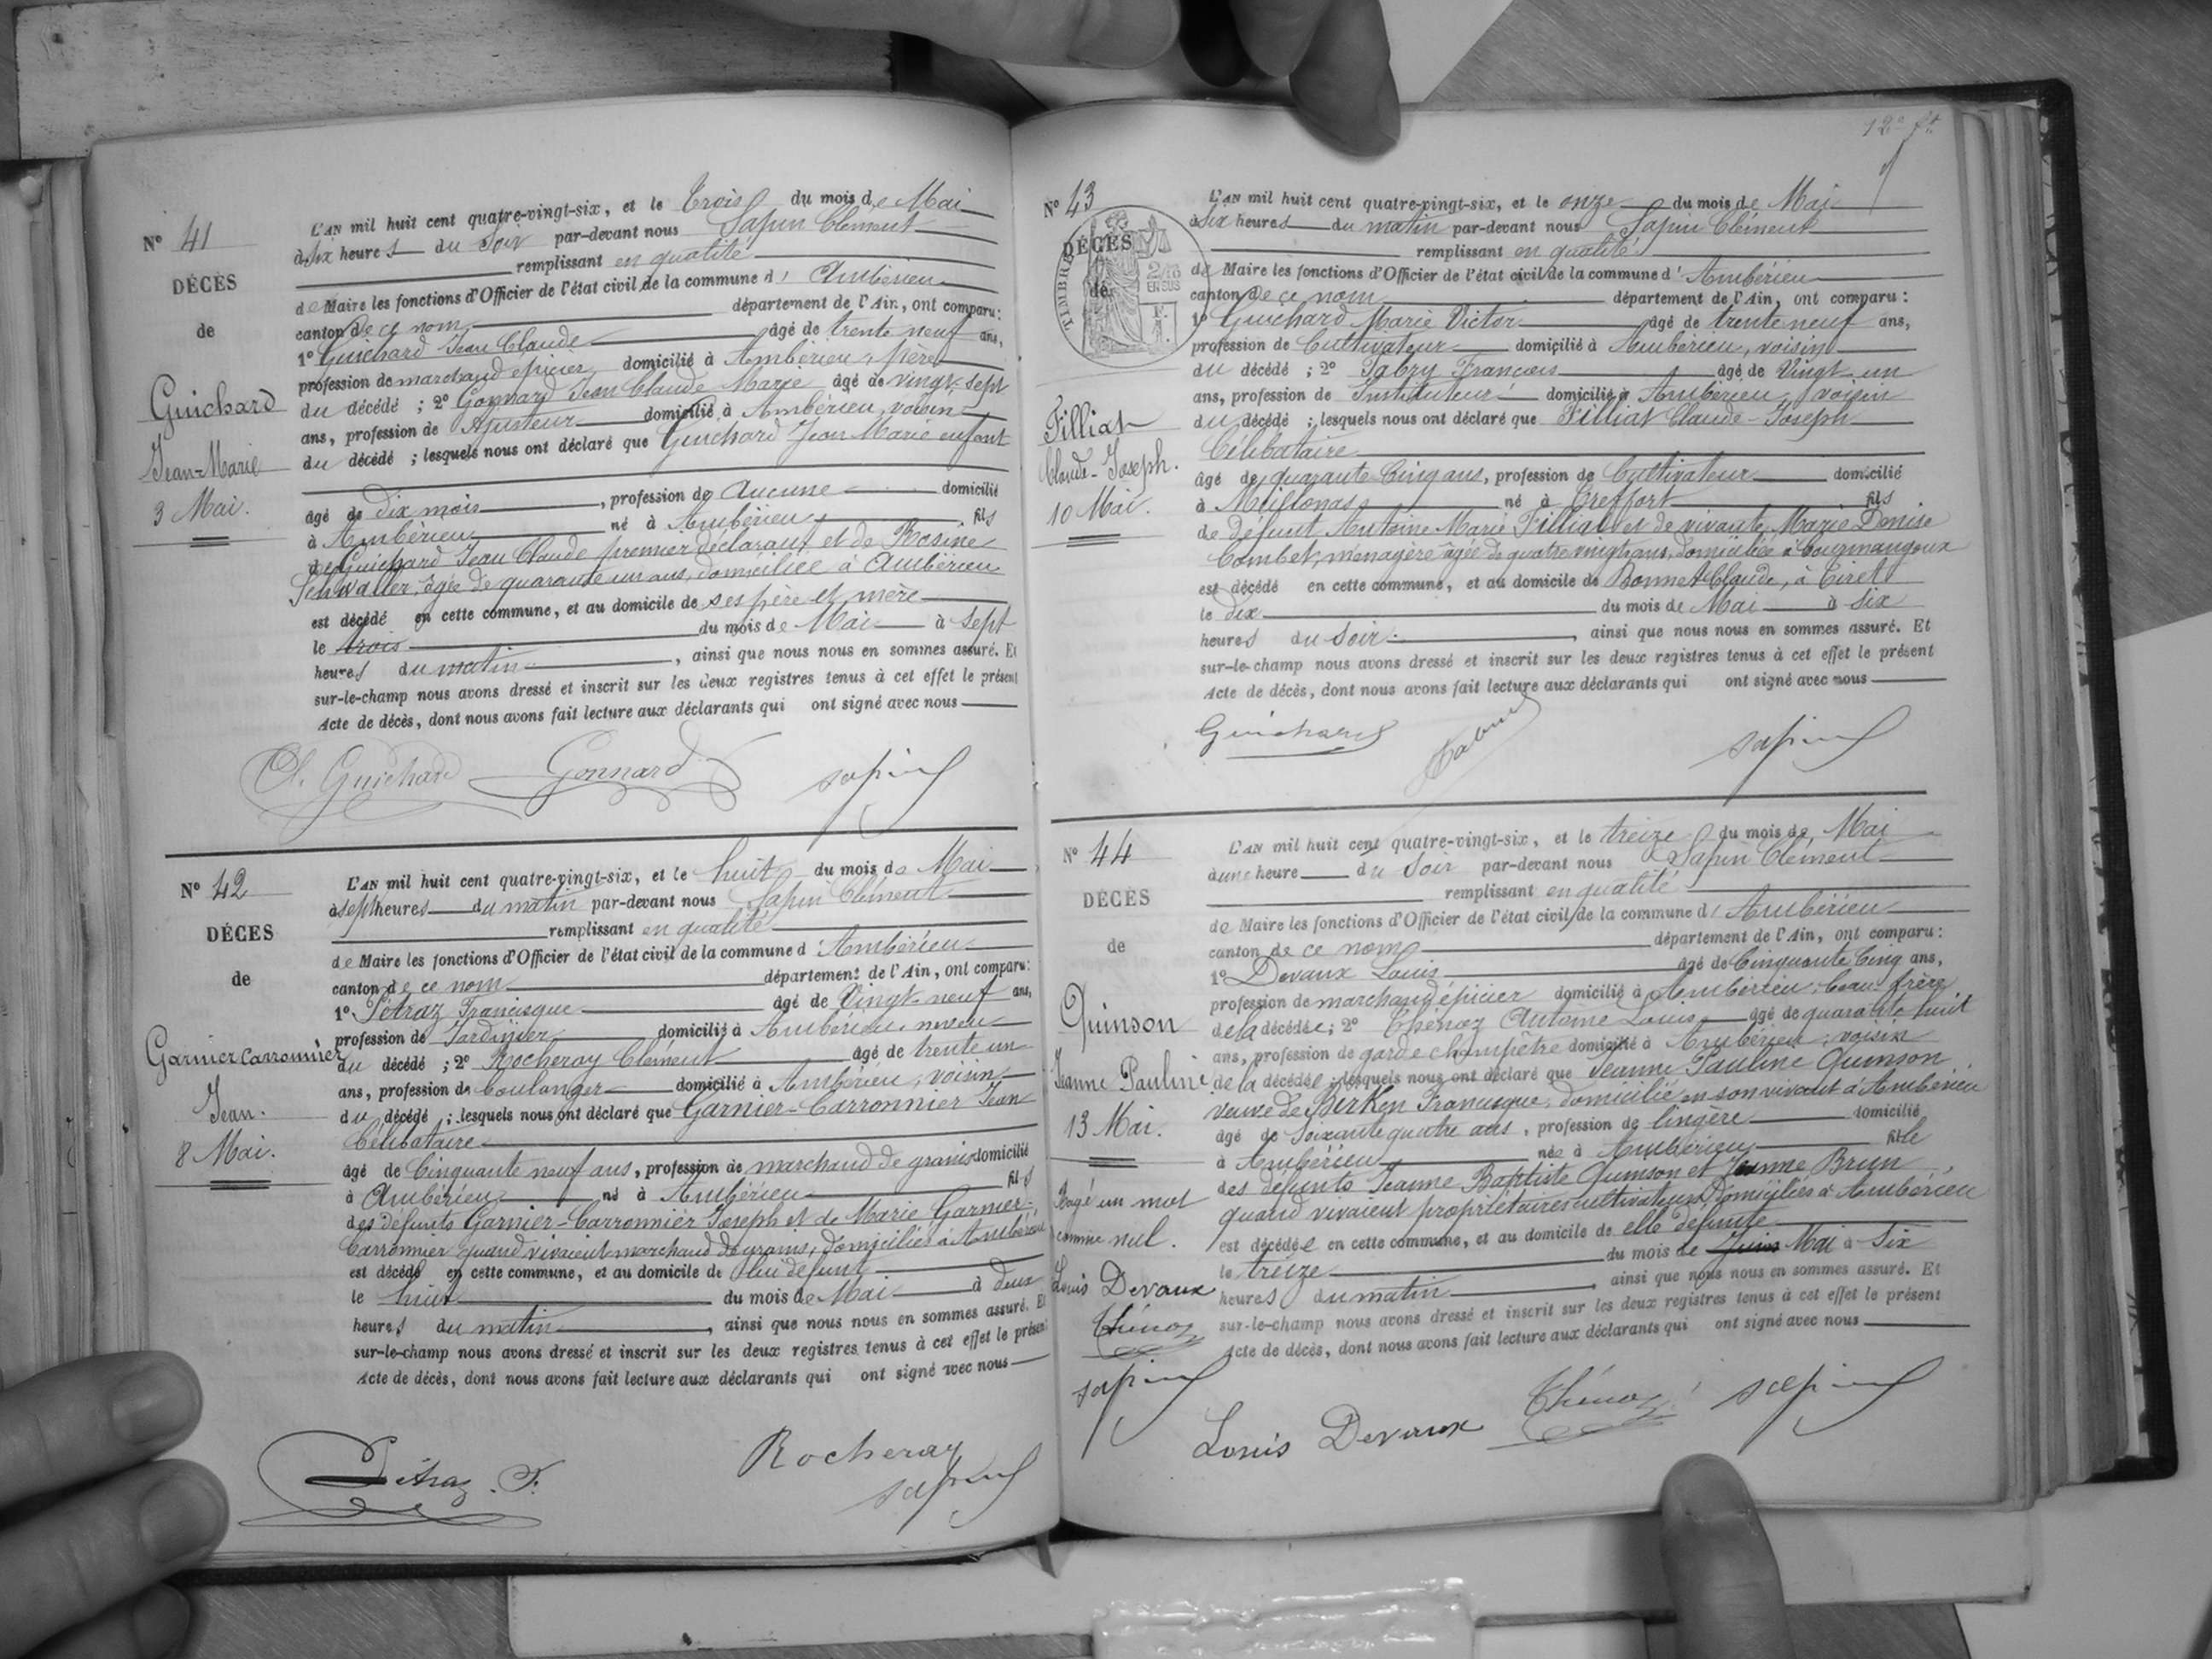 N° 41
DÉCÈS
de
Guichard
Jean-Marie
3 Mai.
L'AN mil huit cent quatre-vingt-six, et le trois du mois de Mai
à six heures du soir par-devant nous Sapin Clément
remplissant en qualité
de Maire les fonctions d'Officier de l'état civil de la commune d' Ambérieu
canton de ce nom département de l'Ain, ont comparu:
1° Guichard Jean Claude âgé de trente neuf ans,
profession de marchand épicier domicilié à Ambérieu, père
du décédé ; 2° Gonnard Jean Claude Marie âgé de vingt-sept
ans, profession de Ajusteur domicilié à Ambérieu, voisin
du décédé ; lesquels nous ont déclaré que Guichard Jean Marie enfant
âgé de dix mois, profession de Aucune domicilié
à Ambérieu né à Ambérieu fils
de Guichard Jean Claude premier déclarant et de Rosine
Schwaller, âgée de quarante un ans, domiciliée à Ambérieu
est décédé en cette commune, et au domicile de ses père et mère
le trois du mois de Mai à sept
heures du matin, ainsi que nous nous en sommes assuré. Et
sur-le-champ nous avons dressé et inscrit sur les deux registres tenus à cet effet le présent
Acte de décès, dont nous avons fait lecture aux déclarants qui ont signé avec nous
Cl. Guichard Gonnard Sapin
N° 42
DÉCES
de
Garnier Carronnier
Jean.
8 Mai.
L'AN mil huit cent quatre-vingt-six, et le huit du mois de Mai
à sept heures du matin par-devant nous Sapin Clément
remplissant en qualité
de Maire les fonctions d'Officier de l'état civil de la commune d' Ambérieu
canton de ce nom département de l'Ain, ont comparu:
1° Pétraz Francisque âgé de vingt-neuf ans,
profession de Jardinier domicilié à Ambérieu, neveu
du décédé ; 2° Rocheray Clément âgé de trente un
ans, profession de boulanger domicilié à Ambérieu, voisin
du décédé ; lesquels nous ont déclaré que Garnier-Carronnier Jean
Célibataire
âgé de Cinquante neuf ans, profession de marchand de grains domicilié
à Ambérieu né à Ambérieu fils
des défunts Garnier-Carronnier Joseph et de Marie Garnier-
Carronnier quand vivaient marchand de grains, domiciliés à Ambérieu
est décédé en cette commune, et au domicile de lui défunt
le huit du mois de Mai à deux
heures du matin, ainsi que nous nous en sommes assuré. Et
sur-le-champ nous avons dressé et inscrit sur les deux registres tenus à cet effet le présent
Acte de décès, dont nous avons fait lecture aux déclarants qui ont signé avec nous
Pétraz. F. Rocheray
Sapin
12e ft
N° 43
DÉCÈS
de
TIMBRE
2/10
EN SUS
Filliat
Claude-Joseph.
10 Mai.
L'AN mil huit cent quatre-vingt-six, et le onze du mois de Mai
à six heures du matin par-devant nous Sapin Clément
remplissant en qualité
de Maire les fonctions d'Officier de l'état civil de la commune d' Ambérieu
canton de ce nom département de l'Ain, ont comparu:
1° Guichard Marie Victor âgé de trente neuf ans,
profession de Cultivateur domicilié à Ambérieu, voisin
du décédé ; 2° Fabry François âgé de Vingt un
ans, profession de Instituteur domicilié à Ambérieu, voisin
du décédé ; lesquels nous ont déclaré que Filliat Claude-Joseph
Célibataire
âgé de quarante Cinq ans, profession de Cultivateur domicilié
à Meillonas né à Treffort fils
de défunt Antoine Marie Filliat et de vivante Marie Denise
Combet, ménagère âgée de quatre vingts ans, domiciliée à Courmangoux
est décédé en cette commune, et au domicile de Bonnet Claude, à Tiret
le dix du mois de Mai à six
heures du soir, ainsi que nous nous en sommes assuré. Et
sur-le-champ nous avons dressé et inscrit sur les deux registres tenus à cet effet le présent
Acte de décès, dont nous avons fait lecture aux déclarants qui ont signé avec nous
Guichard Sapin
N° 44
DÉCÈS
de
Quinson
Jeanne Pauline
13 Mai.
Rayé un mot
comme nul.
Louis Devaux
Thénoz
Sapin
L'AN mil huit cent quatre-vingt-six, et le treize du mois de Mai
à une heure du soir par-devant nous Sapin Clément
remplissant en qualité
de Maire les fonctions d'Officier de l'état civil de la commune d' Ambérieu
canton de ce nom département de l'Ain, ont comparu:
1° Devaux Louis âgé de Cinquante Cinq ans,
profession de marchand épicier domicilié à Ambérieu, beau-frère
de la décédée ; 2° Thénoz Antoine Louis âgé de quarante huit
ans, profession de garde champêtre domicilié à Ambérieu, voisin
de la décédée ; lesquels nous ont déclaré que Jeanne Pauline Quinson
veuve de Berken Francisque, domicilié en son vivant à Ambérieu
âgé de Soixante quatre ans, profession de lingère domicilié
à Ambérieu née à Ambérieu fille
des défunts Jeanne Baptiste Quinson et Jeanne Brun
quand vivaient propriétaires cultivateurs domiciliés à Ambérieu
est décédée en cette commune, et au domicile de elle défunte
le treize du mois de Juin Mai à six
heures du matin, ainsi que nous nous en sommes assuré. Et
sur-le-champ nous avons dressé et inscrit sur les deux registres tenus à cet effet le présent
Acte de décès, dont nous avons fait lecture aux déclarants qui ont signé avec nous
Louis Devaux Thénoz Sapin